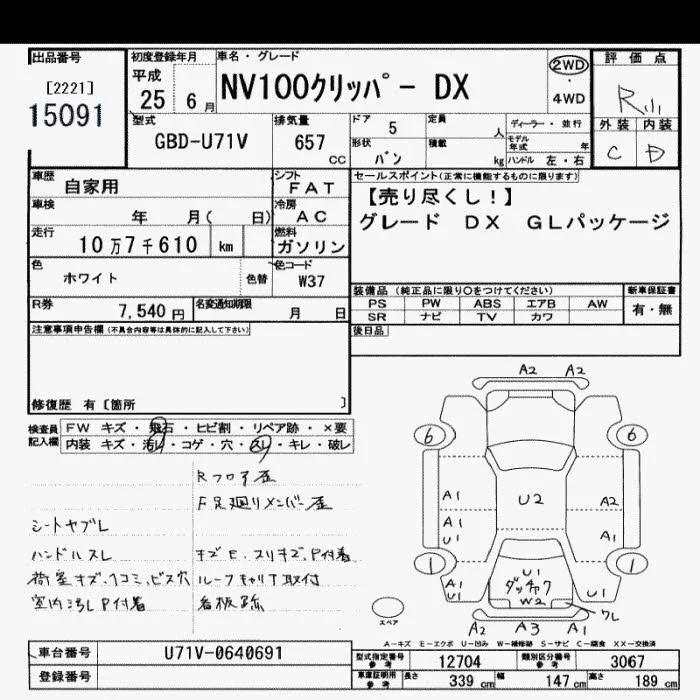 出品番号
[2221]
15091
初度登録年月
平成
25 6月
車名・グレード
NV100クリッパー DX
2WD
・
4WD
評価点
R
外装 内装
C D
型式
GBD-U71V
排気量
657
CC
ドア
5
定員
人
形状
バン
積載
kg
ディーラー・並行
モデル年式
年
ハンドル 左・右
車歴
自家用
シフト
FAT
車検
年 月( 日)
冷房
AC
走行
10万7千610 km
燃料
ガソリン
色
ホワイト
色替
色コード
W37
R券
7,540円
名変通知期限
月 日
セールスポイント(正常に機能するものに限ります)
【売り尽くし!】
グレード DX GLパッケージ
装備品 (純正品に限り○をつけてください)
PS PW ABS エアB AW
SR ナビ TV カワ
新車保証書
有・無
後日品
注意事項申告欄 (不具合内容等は具体的に記入して下さい)
修復歴 有 [箇所 ]
検査員
記入欄
FW キズ・飛石・ヒビ割・リペア跡・×要
内装 キズ・汚レ・コゲ・穴・スレ・キレ・破レ
Rフロア歪
F足廻りメンバー歪
シートヤブレ
ハンドルスレ
キズE、スリキズ、P付着
荷室キズ、ヘコミ、ビス穴
ルーフキャリア取付
室内汚レP付着
看板跡
A2 A2
6 6
A1 U2 A2
A1
U1 A1
1 1
A1
U1
U1
ダッチャク
W2
U1
ワレ
A2 A3 A1
スペア
A-キズ E-エクボ U-凹み W-補修跡 S-サビ C-腐食 XX-交換済
車台番号
U71V-0640691
登録番号
型式指定番号
参考
12704
類別区分番号
参考
3067
車庫証明用
参考
長さ 339 cm 幅 147 cm 高さ 189 cm